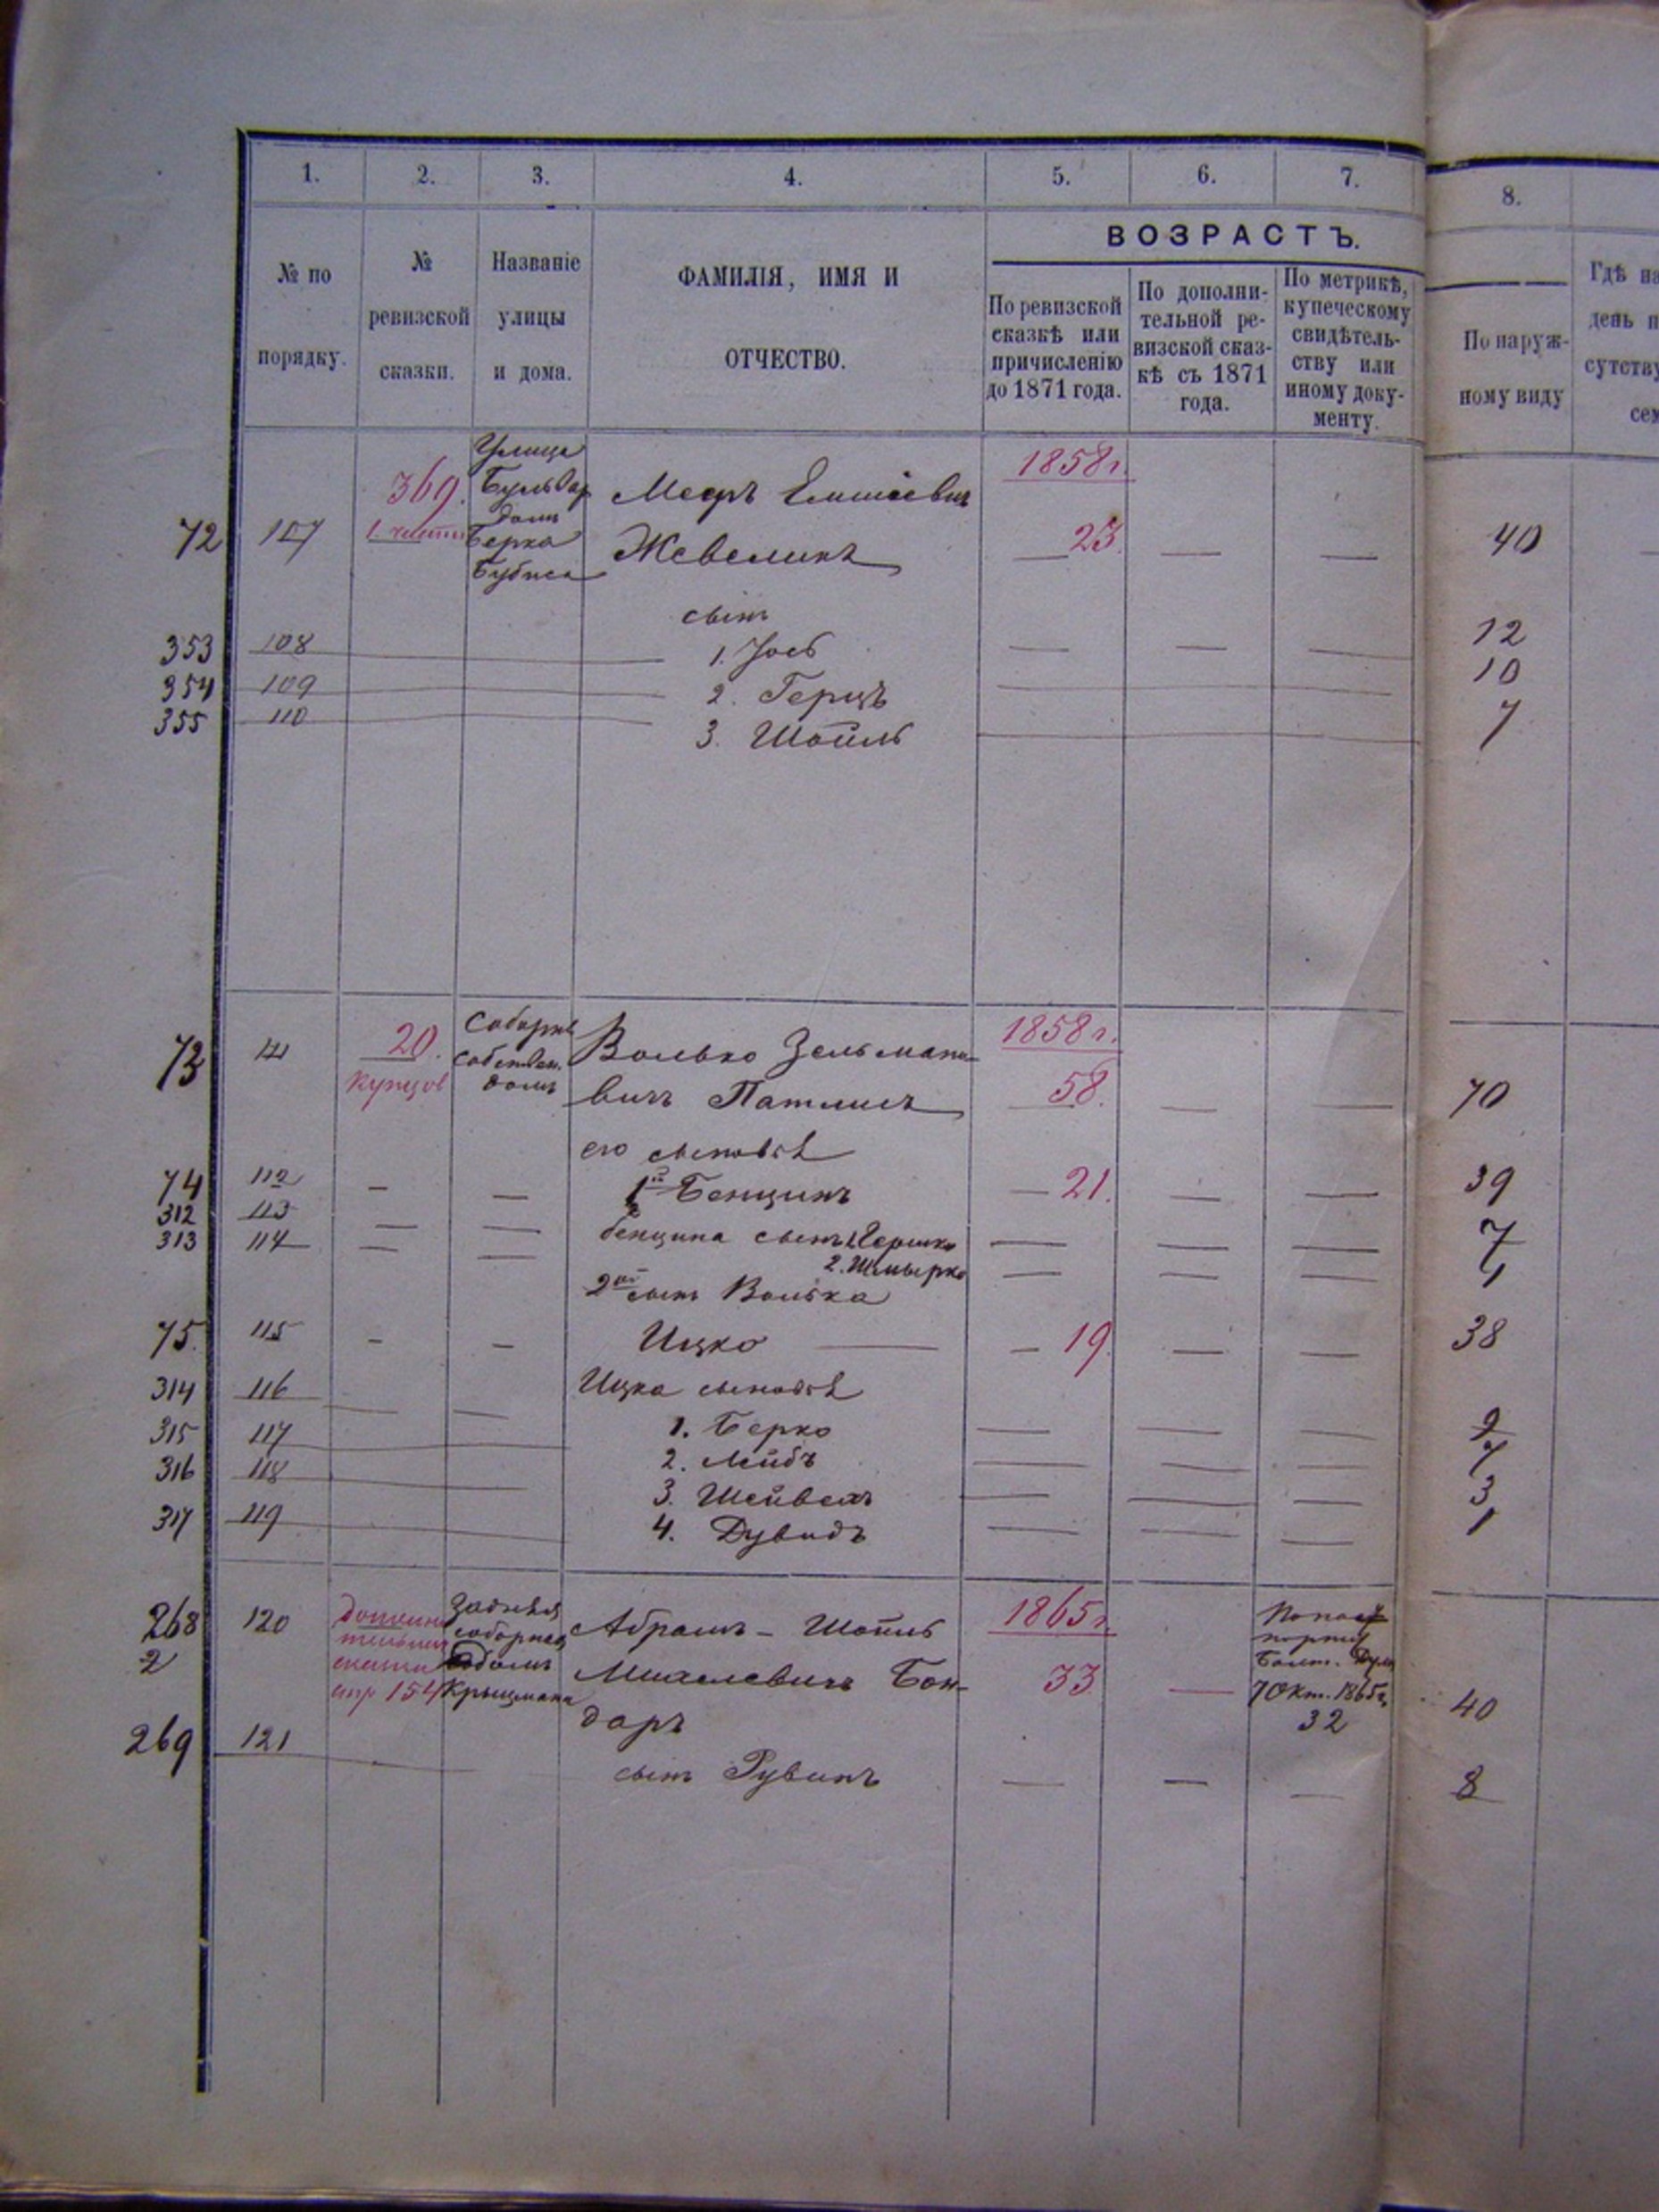 1. 2. 3. 4. 5. 6. 7. 8.
№ по порядку.
№ ревизской сказки.
Названіе улицы и дома.
ФАМИЛІЯ, ИМЯ И ОТЧЕСТВО.
ВОЗРАСТЪ.
По ревизской сказкѣ или причисленію до 1871 года.
По дополни-тельной ре-визской сказ-кѣ съ 1871 года.
По метрикѣ, купеческому свидѣтель-ству или иному доку-менту.
По наруж-ному виду
Гдѣ на
день п
сутству
сем
Улица
369. Бульвар Меэръ 1858 г.
домъ
72 107 1. части Берка Жевеликъ 23. — — 40
Бубиса
сынъ
353 108 1. Іось — — — 12
354 109 2. Герцъ 10
355 110 3. Шоиль 7
73 111 20. Соборн Волько Зельмано- 1858 г.
Собствен.
купцов домъ вичъ Патлисъ 58. — — 70
его сыновья
74 112 — — 1й Бенцинъ — 21. — — 39
312 113 — — бенцина сынъ 1. Гершко — — — 7
313 114 — — 2. Шмырко — — — 1
2ой сынъ Волька
75. 115 — — Ицко — 19. — — 38
314 116 — — Ицка сыновья
315 117 1. Берко — — — 9
316 118 2. Лейбъ — — — 7
3. Шейвель — — — 3
317 119 4. Дувидъ — — — 1
268 120 Задняя Абрамъ - Шоиль 1865 г.
соборная
2 сказки домъ Михелевичъ Бон- 33 — 7 Окт. 1865 г. 40
стр 154 Крыцмана
даръ 32
269 121
сынъ Рувинъ — — — 8